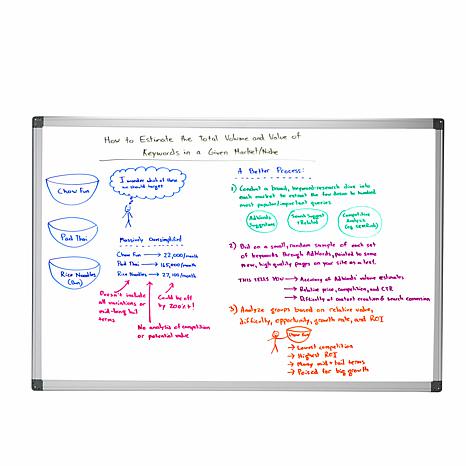 How to Estimate the Total Volume and Value of
Keywords in a Given Market/Niche
Chow Fun
Pad Thai
Rice Noodles
(Bun)
I wonder which of these
we should target
Massively Oversimplified!
Chow Fun → 22,000/month
Pad Thai → 165,000/month
Rice Noodles → 27,100/month
Doesn't include
all variations or
mid-long tail
terms
Could be off
by 200%±!
No analysis of competition
or potential value
A Better Process:
1) Conduct a broad, keyword-research dive into
each market to extract the few dozen to hundred
most popular/important queries
AdWords
Suggestions
Search Suggest
+ Related
Competitive
Analysis
(e.g. SEMRush)
2) Put on a small, random sample of each set
of keywords through AdWords, pointed to some
new, high quality pages on your site as a test.
THIS TELLS YOU → Accuracy of AdWords' volume estimates
→ Relative price, competition, and CTR
→ Difficulty of content creation & search conversion
3) Analyze groups based on relative value,
difficulty, opportunity, growth rate, and ROI
Chow Fun
→ Lowest competition
→ Highest ROI
→ Many mid + tail terms
→ Poised for big growth